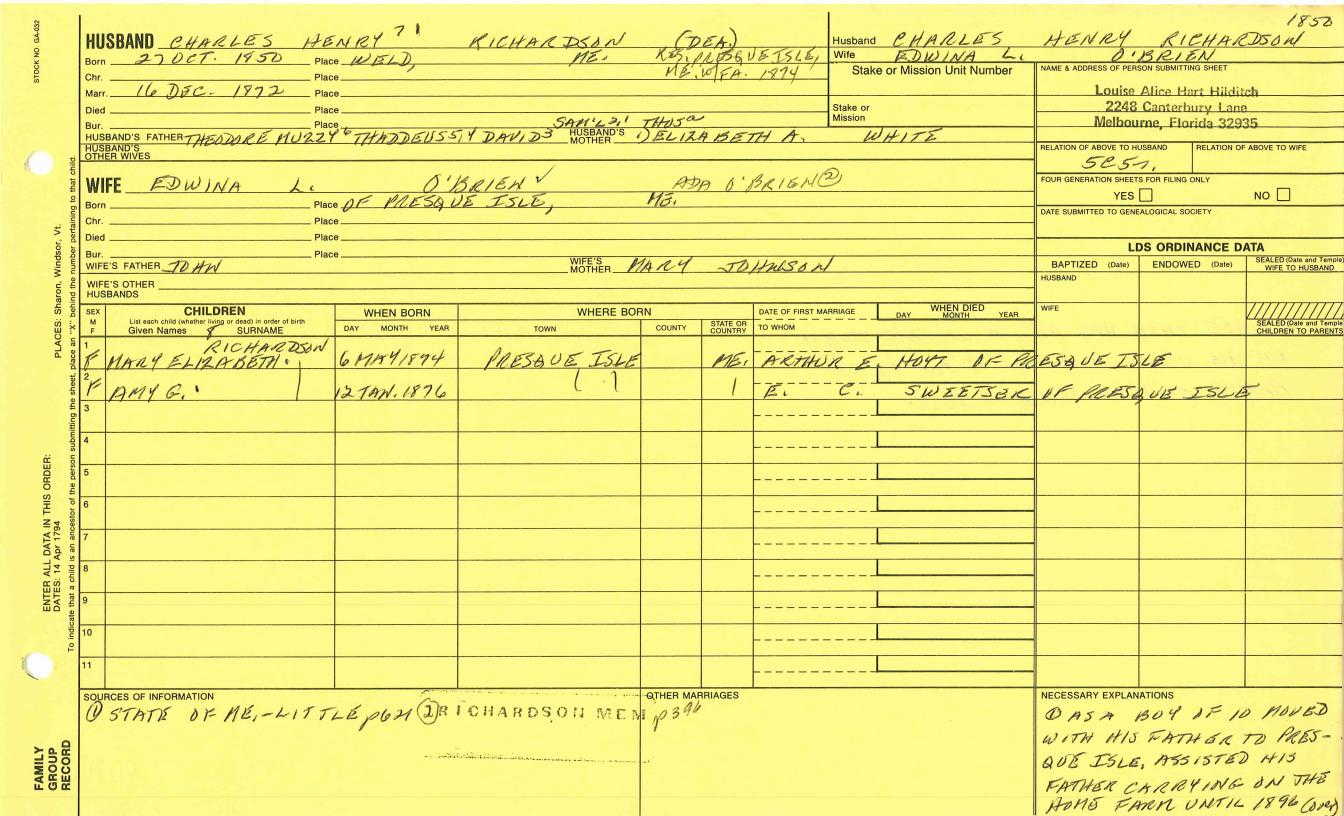 1850
STOCK NO. GA-032
HUSBAND CHARLES HENRY 71 RICHARDSON (DEA.)
Born 27 OCT. 1850 Place WELD, ME. RES. PRESQUE ISLE,
Chr. Place ME. W/FA. 1874
Marr. 16 DEC. 1872 Place
Died Place
Bur. Place SAM'L 2,1 THOS a
HUSBAND'S FATHER THEODORE MUZZY 6 THADDEUS 5,4 DAVID 3 HUSBAND'S MOTHER 1) ELIZABETH A. WHITE
HUSBAND'S OTHER WIVES
WIFE EDWINA L. O'BRIEN ✓ ADA O'BRIEN ②
Born Place OF PRESQUE ISLE, ME.
Chr. Place
Died Place
Bur. Place
WIFE'S FATHER JOHN WIFE'S MOTHER MARY JOHNSON
WIFE'S OTHER HUSBANDS
Husband CHARLES HENRY RICHARDSON
Wife EDWINA L. O'BRIEN
Stake or Mission Unit Number
Stake or Mission
NAME & ADDRESS OF PERSON SUBMITTING SHEET
Louise Alice Hart Hilditch
2248 Canterbury Lane
Melbourne, Florida 32935
RELATION OF ABOVE TO HUSBAND RELATION OF ABOVE TO WIFE
5C5r.
FOUR GENERATION SHEETS FOR FILING ONLY
YES NO
DATE SUBMITTED TO GENEALOGICAL SOCIETY
LDS ORDINANCE DATA
BAPTIZED (Date) ENDOWED (Date) SEALED (Date and Temple) WIFE TO HUSBAND
HUSBAND
WIFE
SEALED (Date and Temple) CHILDREN TO PARENTS
SEX M F CHILDREN WHEN BORN WHERE BORN DATE OF FIRST MARRIAGE WHEN DIED
List each child (whether living or dead) in order of birth
Given Names SURNAME DAY MONTH YEAR TOWN COUNTY STATE OR COUNTRY TO WHOM DAY MONTH YEAR
8 RICHARDSON
1 F MARY ELIZABETH. 6 MAY 1874 PRESQUE ISLE ME. ARTHUR E. HOYT OF PRESQUE ISLE
2 F AMY G. 12 JAN. 1876 E. C. SWEETSER OF PRESQUE ISLE
3
4
5
6
7
8
9
10
11
SOURCES OF INFORMATION OTHER MARRIAGES
① STATE OF ME.-LITTLE p621 ② RICHARDSON MEM p396
NECESSARY EXPLANATIONS
① AS A BOY OF 10 MOVED
WITH HIS FATHER TO PRES-
QUE ISLE, ASSISTED HIS
FATHER CARRYING ON THE
HOME FARM UNTIL 1896 (over)
PLACES: Sharon, Windsor, Vt.
ENTER ALL DATA IN THIS ORDER:
DATES: 14 Apr 1794
To indicate that a child is an ancestor of the person submitting the sheet, place an "X" behind the number pertaining to that child.
FAMILY
GROUP
RECORD